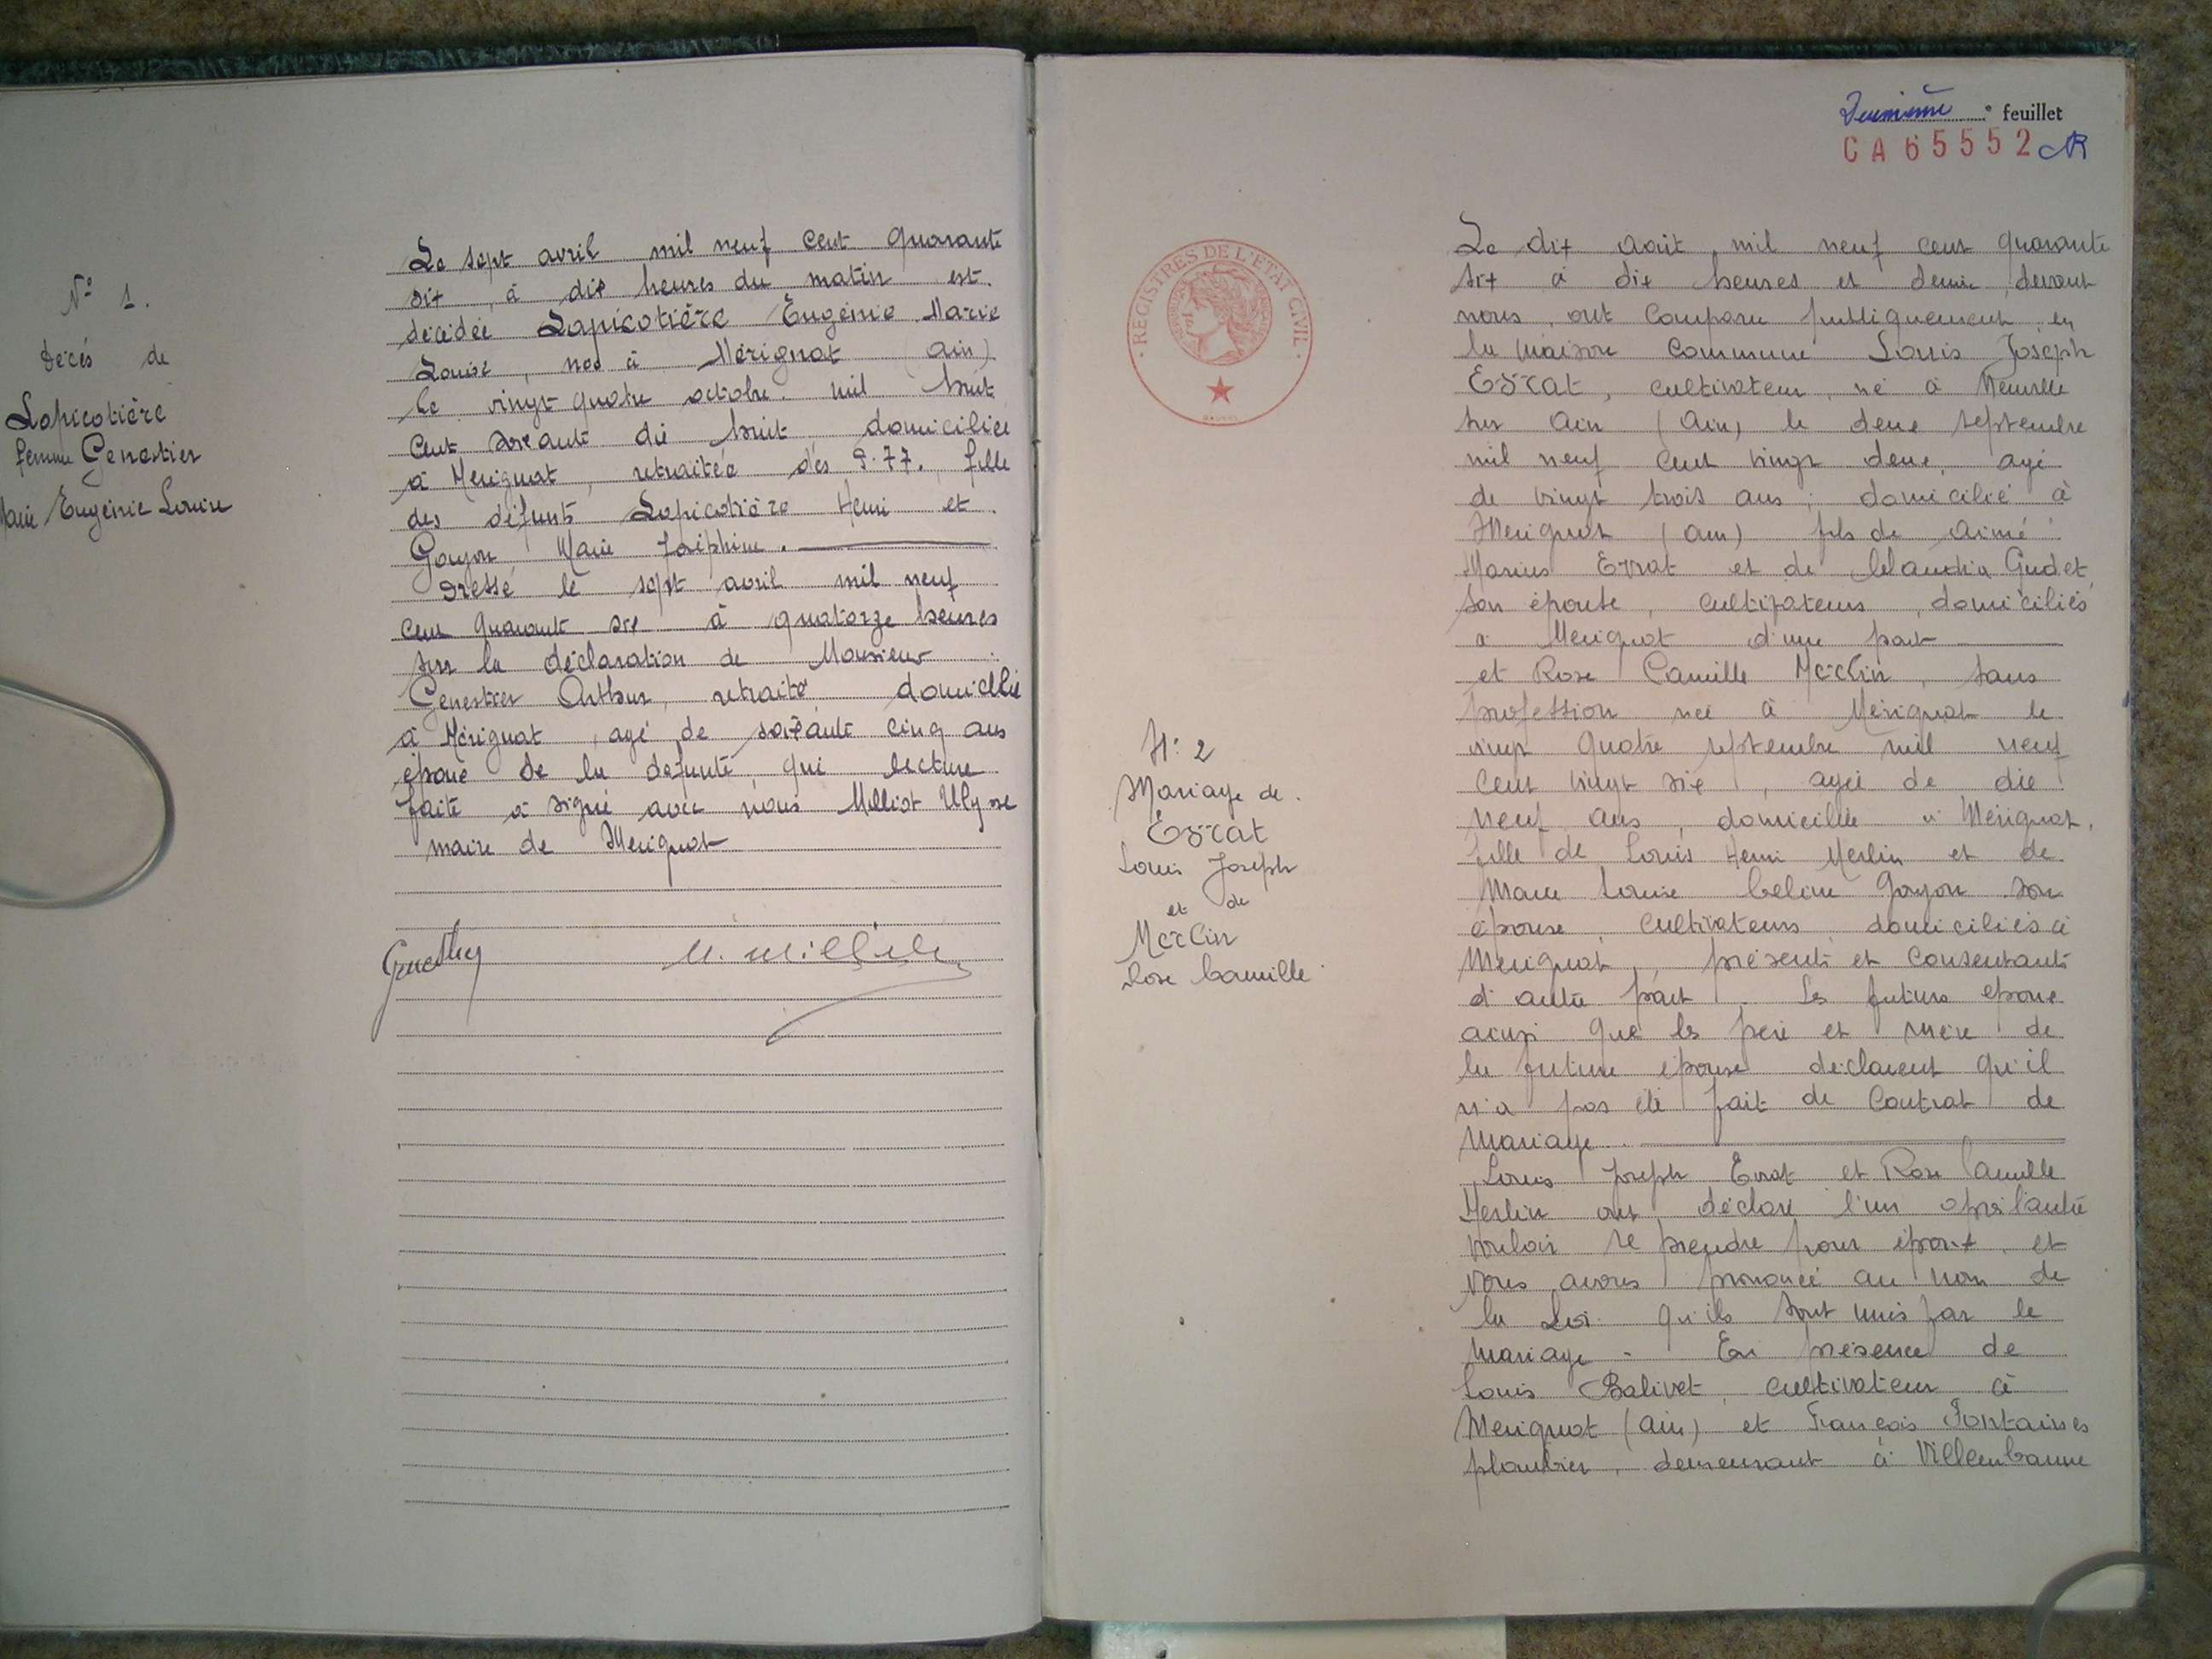 N° 1.
décés de
Lapicotière
femme Genestier
Marie Eugénie Louise
Le sept avril mil neuf cent quarante
six, à dix heures du matin est
décédée Lapicotière Eugénie Marie
Louise, née à Mérignat (Ain)
le vingt quatre octobre mil huit
cent soixante dix huit domiciliée
à Mérignat, retraitée des P.T.T. fille
des défunts Lapicotière Henri et
Goyon Marie Joséphine.
Dressé le sept avril mil neuf
cent quarante six à quatorze heures
sur la déclaration de Monsieur
Genestier Arthur, retraité domicilié
à Mérignat, agé de soixante cinq ans
époux de la defunte, qui lecture
faite a signé avec nous Milliat Ulysse
maire de Merignat
Genestier
U. Milliat
Deuxième feuillet
CA 65552
REGISTRES DE L'ETAT CIVIL
N: 2
Mariage de
Errat
Louis Joseph
et de
Merlin
Rose Camille
Le dix août, mil neuf cent quarante
six à dix heures et demie, devant
nous, ont comparu publiquement en
la maison commune Louis Joseph
Errat, cultivateur, né à Neuville
sur Ain (Ain) le deux septembre
mil neuf cent vingt deux, agé
de vingt trois ans, domicilié à
Merignat (Ain) fils de Aimé
Marius Errat et de Claudia Gudet
son épouse, cultivateurs, domiciliés
à Merignat d'une part
et Rose Camille Merlin, sans
profession née à Mérignat le
vingt quatre septembre mil neuf
cent vingt six, agée de dix
neuf ans, domiciliée à Mérignat,
fille de Louis Henri Merlin et de
Marie Louise Celine Goyon son
épouse, cultivateurs domiciliés à
Merignat, présents et consentants
d'autre part. Les futurs epoux
ainsi que les père et mère de
la future épouse déclarent qu'il
n'a pas été fait de contrat de
mariage.
Louis Joseph Errat et Rose Camille
Merlin ont déclaré l'un après l'autre
vouloir se prendre pour époux, et
nous avons prononcé au nom de
la Loi qu'ils sont unis par le
mariage - En présence de
Louis Balivet, cultivateur à
Merignat (Ain) et François Fontaines
plombier, demeurant à Villeurbanne